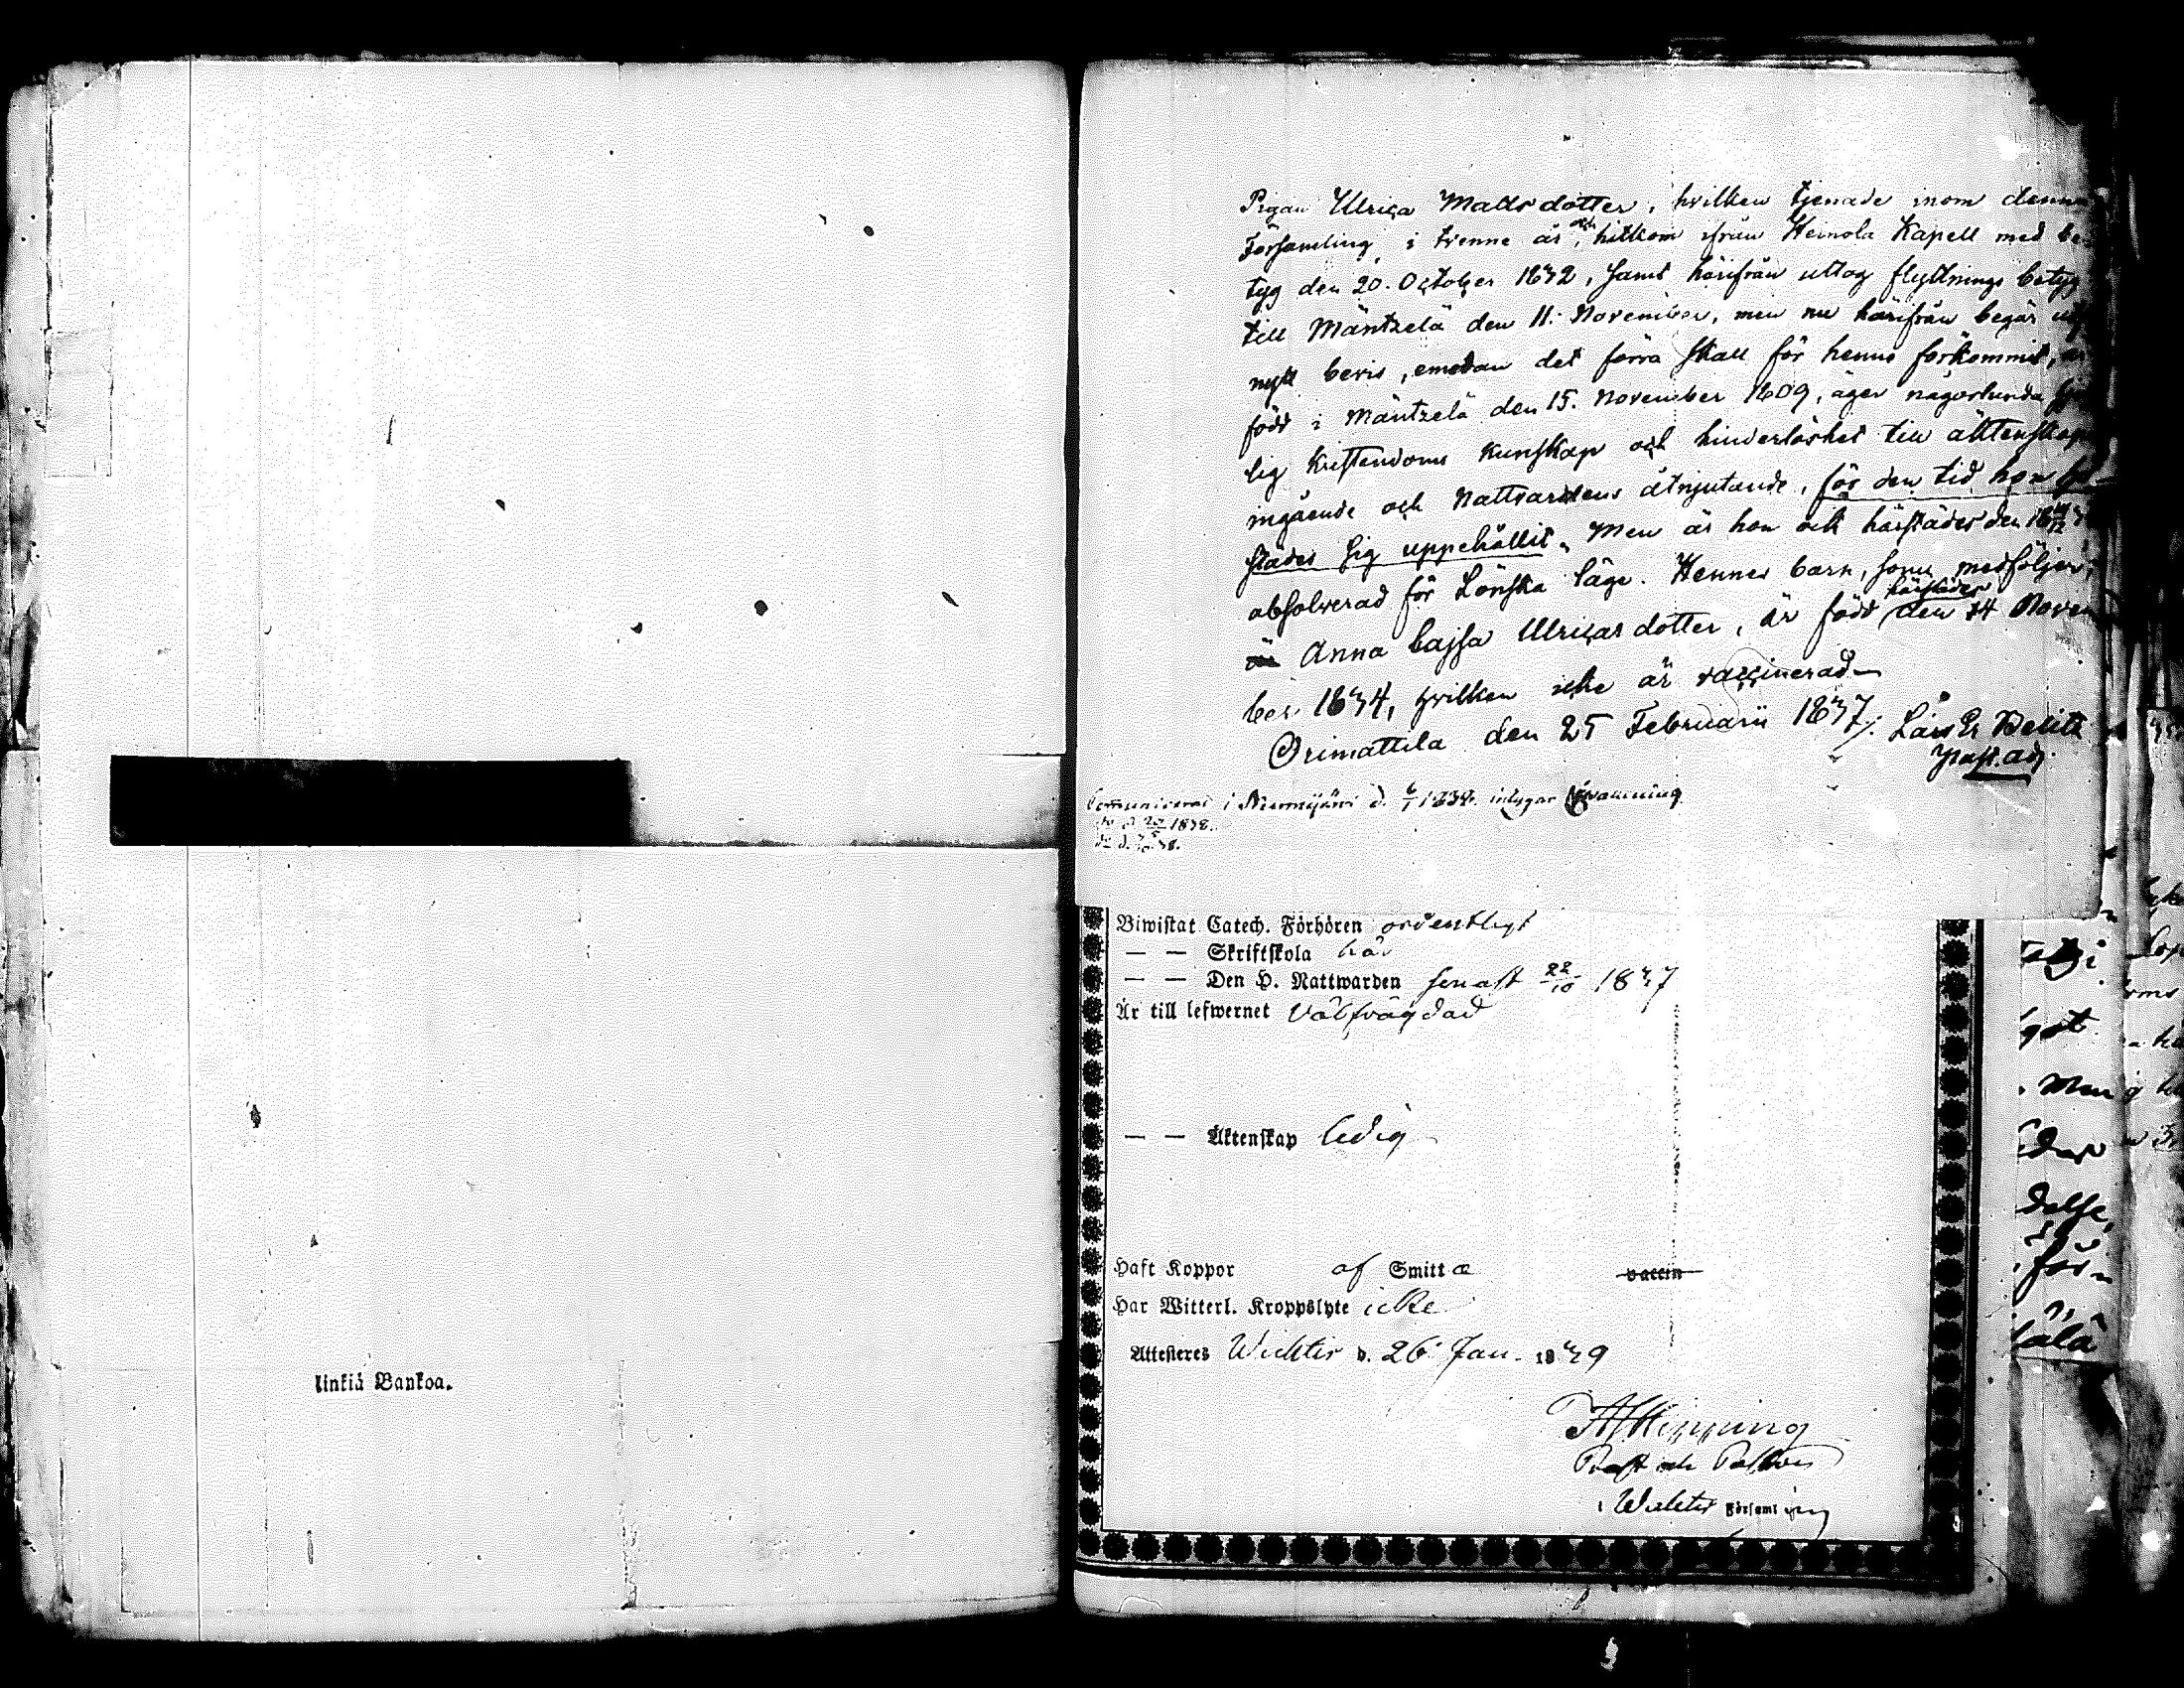 linkiä Bankoa.
Pigan Ulrica Mattsdotter, hvilken tjenade inom denna
Församling i trenne år, och hitkom ifrån Heinola Kapell med be-
tyg den 20. October 1832, samt härifrån uttog flyttnings betyg
till Mäntzelä den 11. November, men nu härifrån begär
nytt bevis, emedan det förra skall för henne förkommit,
född i Mäntzelä den 15. November 1809, äger någorlunda
lig Kristendoms Kunskap och hinderlöshet till äktenskaps
ingående och Nattvardens åtnjutande, för den tid hon
städes sig uppehållit. Men är hon ock härstädes den
absolverad för Lönska läge. Hennes barn, som medföljer,
Anna Cajsa Ulricasdotter, är född härstädes den 14 Novem
ber 1834, hvilken icke är vaccinerad
Orimattila den 25 Februarii 1837. Lars Er
Past. adj.
i Nurmijärvi d. 6/1 1838. intygar
d. 1838.
Biwistat Catech. Förhören ordentligt
— — Skriftskola här
— — Den H. Nattwarden senast 22/10 1837
Är till lefwernet välfrägdad
— — Äktenskap ledig
Haft Koppor af Smitta vaccin
Har Witterl. Kroppslyte icke
Attesteres Wichtis d. 26 Jan. 1839
Hipping
Prost och Pastor
i Wichtis Församling
got
Men
för-